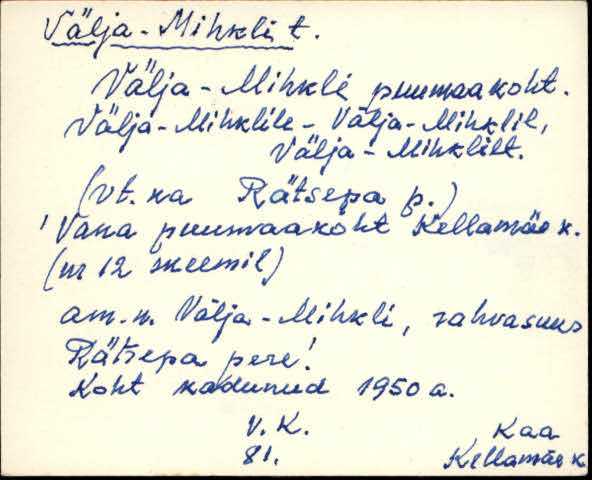 Välja-Mihkli t.
Välja-Mihkli puumaakoht.
Välja-Mihklile - Välja-Mihklil,
Välja-Mihklilt.
(vt. ka Rätsepa p.)
'Vana puumaakoht Kellamäe k.
(nr 12 skeemil)
am.-n. Välja-Mihkli, rahvasuus
Rätsepa pere!
Koht kadunud 1950 a.
V. K. Kaa
81. Kellamäe k